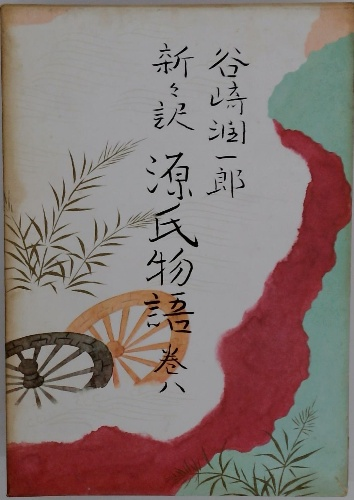 谷崎潤一郎
新々訳
源氏物語
巻八